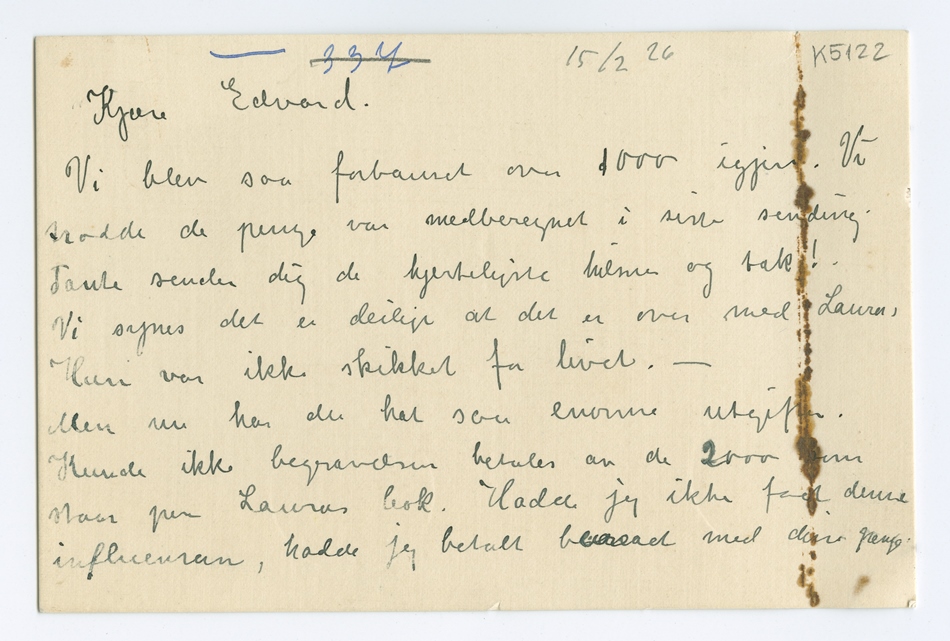 337 15/2 26 K5122
Kjære Edvard.
Vi blev saa forbauset over 1000 igjen. Vi
trodde de penge var medberegnet i siste sending.
Tante sender dig de hjerteligste hilsner og tak!.
Vi synes det er deilig at det er over med Laura,
Hun var ikke skikket for livet. —
Men nu har du hat saa enorme utgifter.
Kunde ikke begravelsen betales av de 2000 som
staar paa Lauras bok. Hadde jeg ikke faat denne
influensaen, hadde jeg betalt med disse penge.